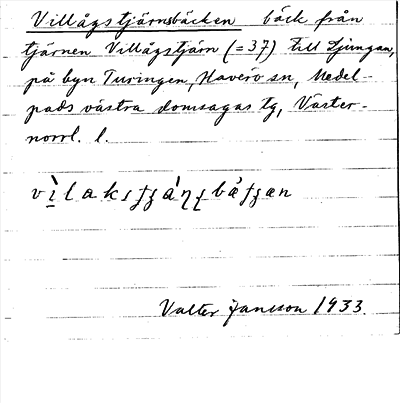 Villågstjärnsbäcken bäck från
tjärnen Villågstjärn (=37) till Ljungan,
på byn Turingen, Haverö sn, Medel-
pads västra domsagas tg, Väster-
norrl. l.
Valter Jansson 1933.